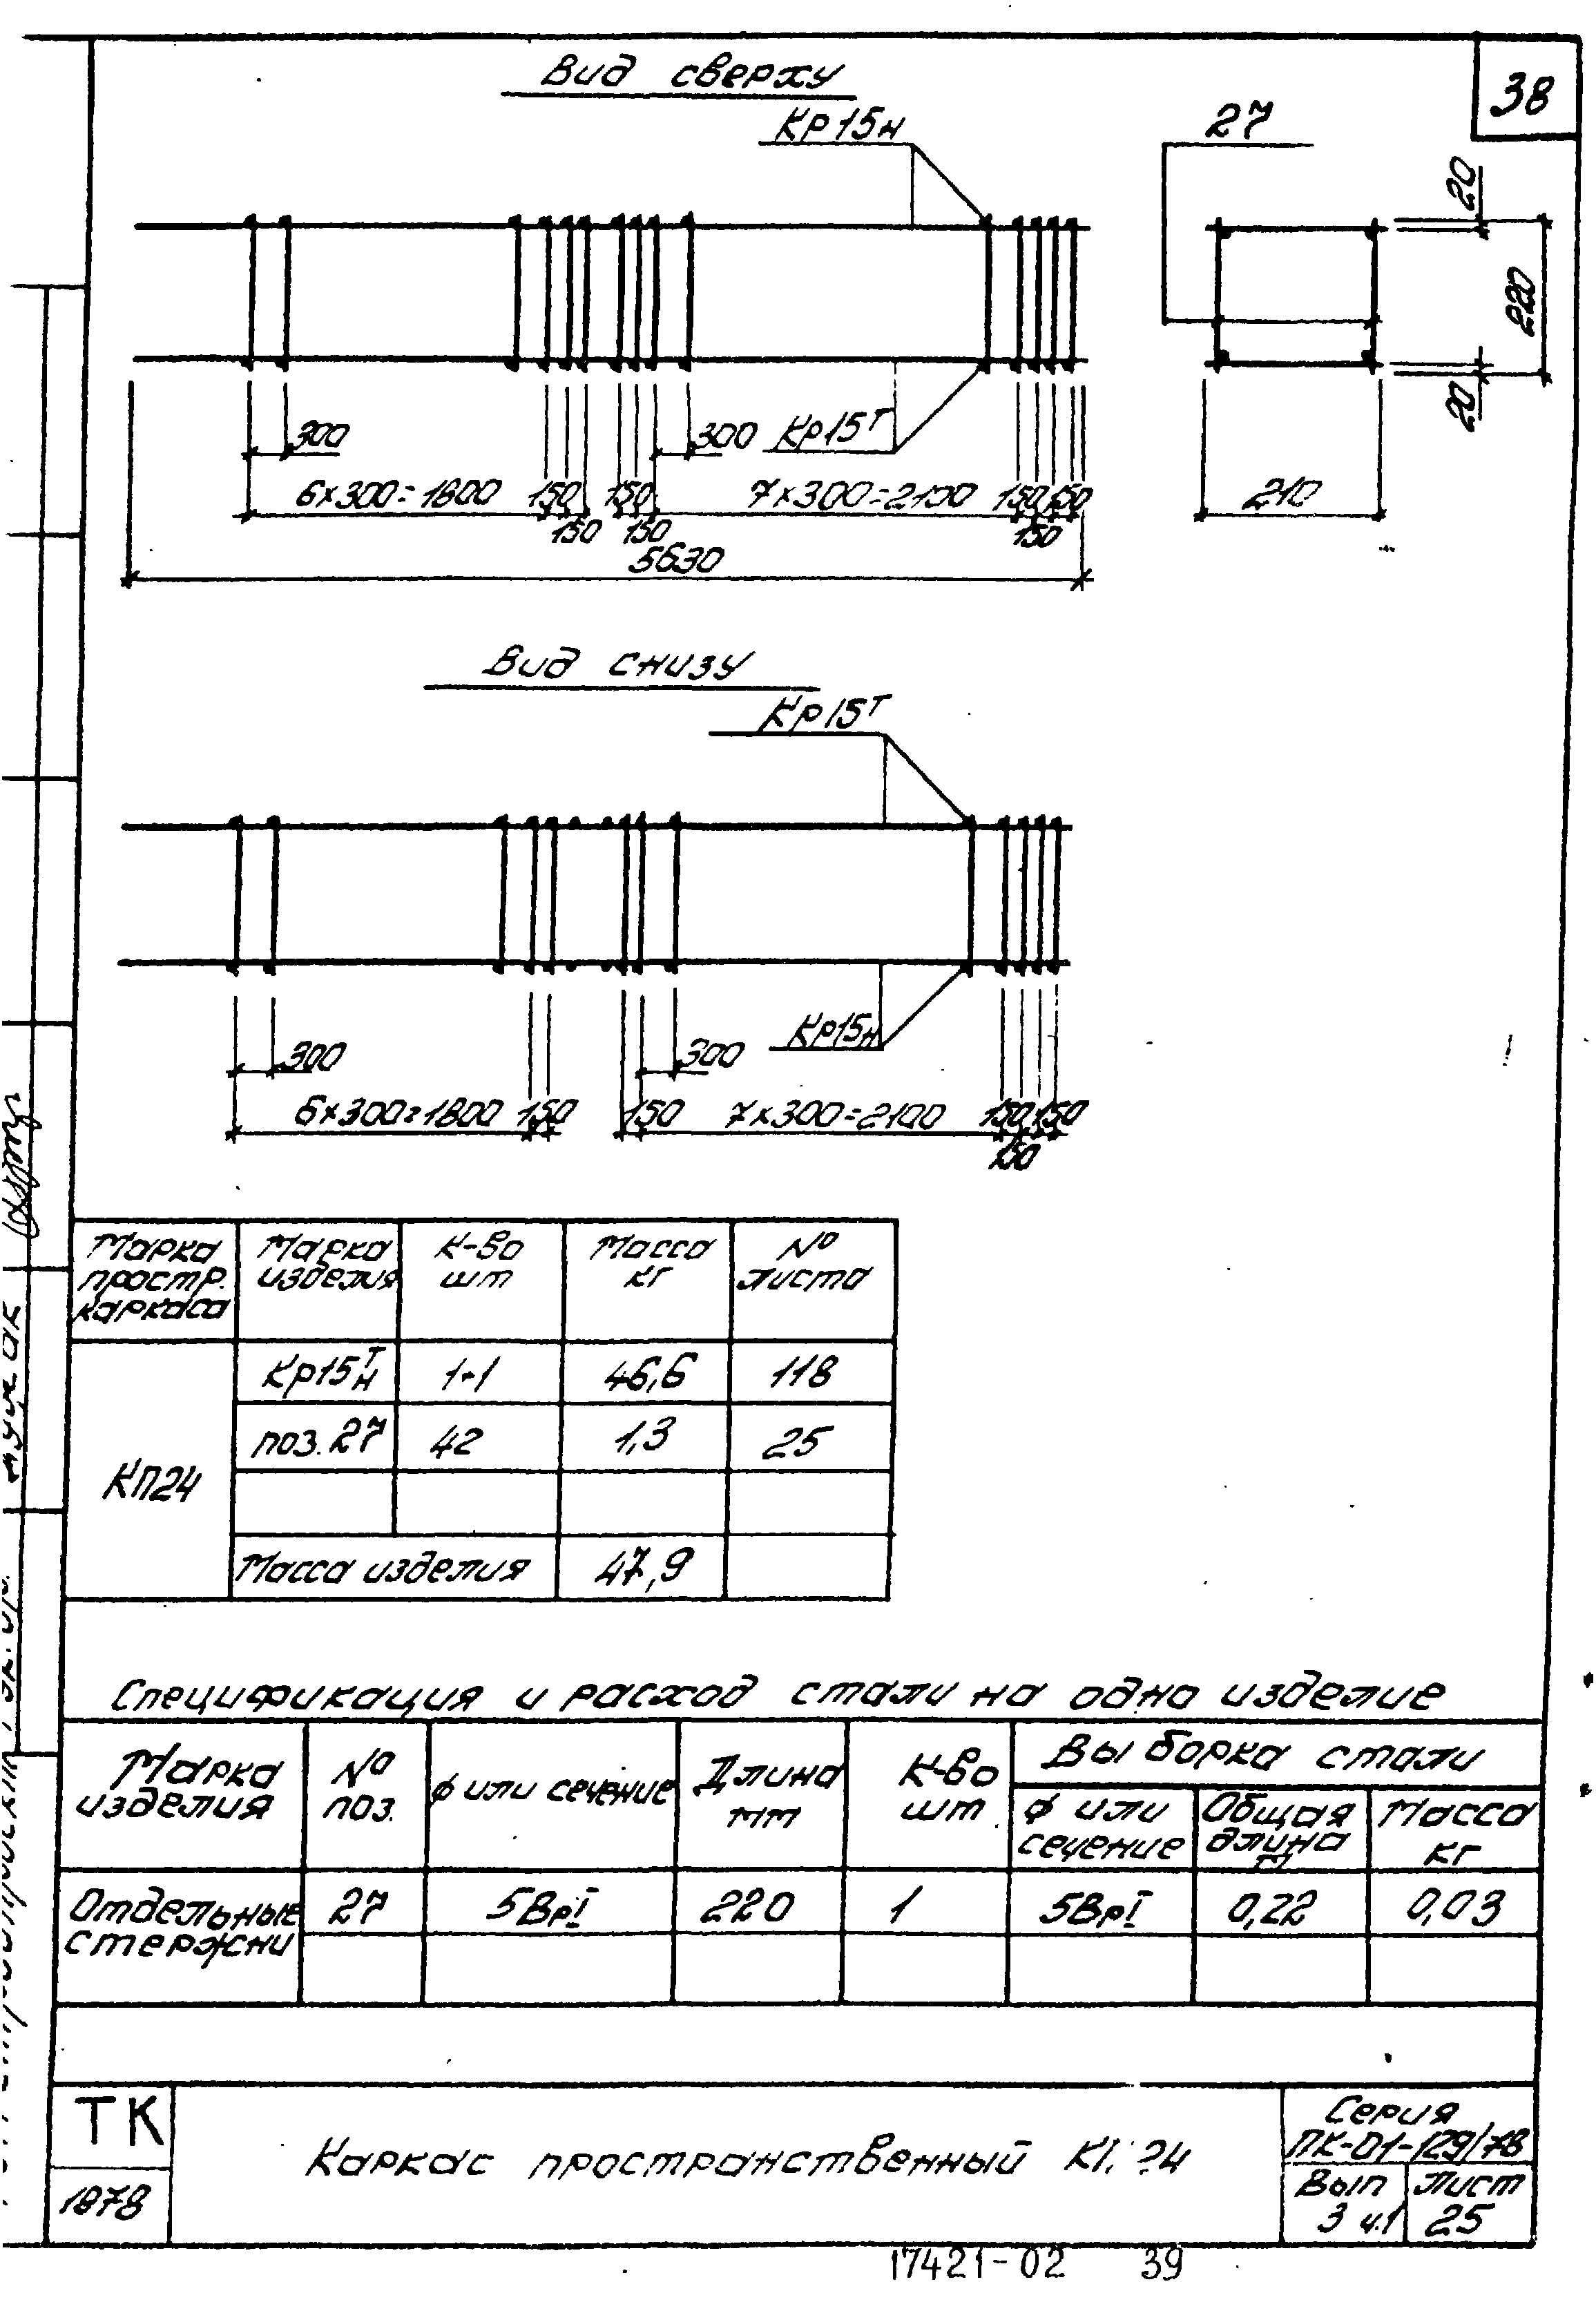 38
Вид сверху
Кр15н
27
20
220
20
210
300
300
Кр15т
6×300=1800 150 150 7×300=2100 150 150
150 150 150
5630
Вид снизу
Кр15т
300
300
Кр15н
6×300=1800 150 150 7×300=2100 150 150
150
Марка простр. каркаса
Марка изделия
К-во шт
Масса кг
№ листа
КП24
Кр15 т н 1+1 46,6 118
поз. 27 42 1,3 25
Масса изделия 47,9
Спецификация и расход стали на одно изделие
Марка изделия
№ поз.
ф или сечение
Длина мм
К-во шт
Выборка стали
ф или сечение
Общая длина м
Масса кг
Отдельные стержни
27 5ВрI 220 1 5ВрI 0,22 0,03
ТК
1978
Каркас пространственный
Серия
ПК-01-129/78
Вып 3 ч.1
Лист 25
17421-02 39